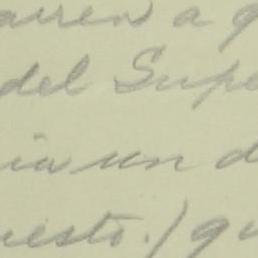 arren a q
del Supe
ia un d
uesto. / qu